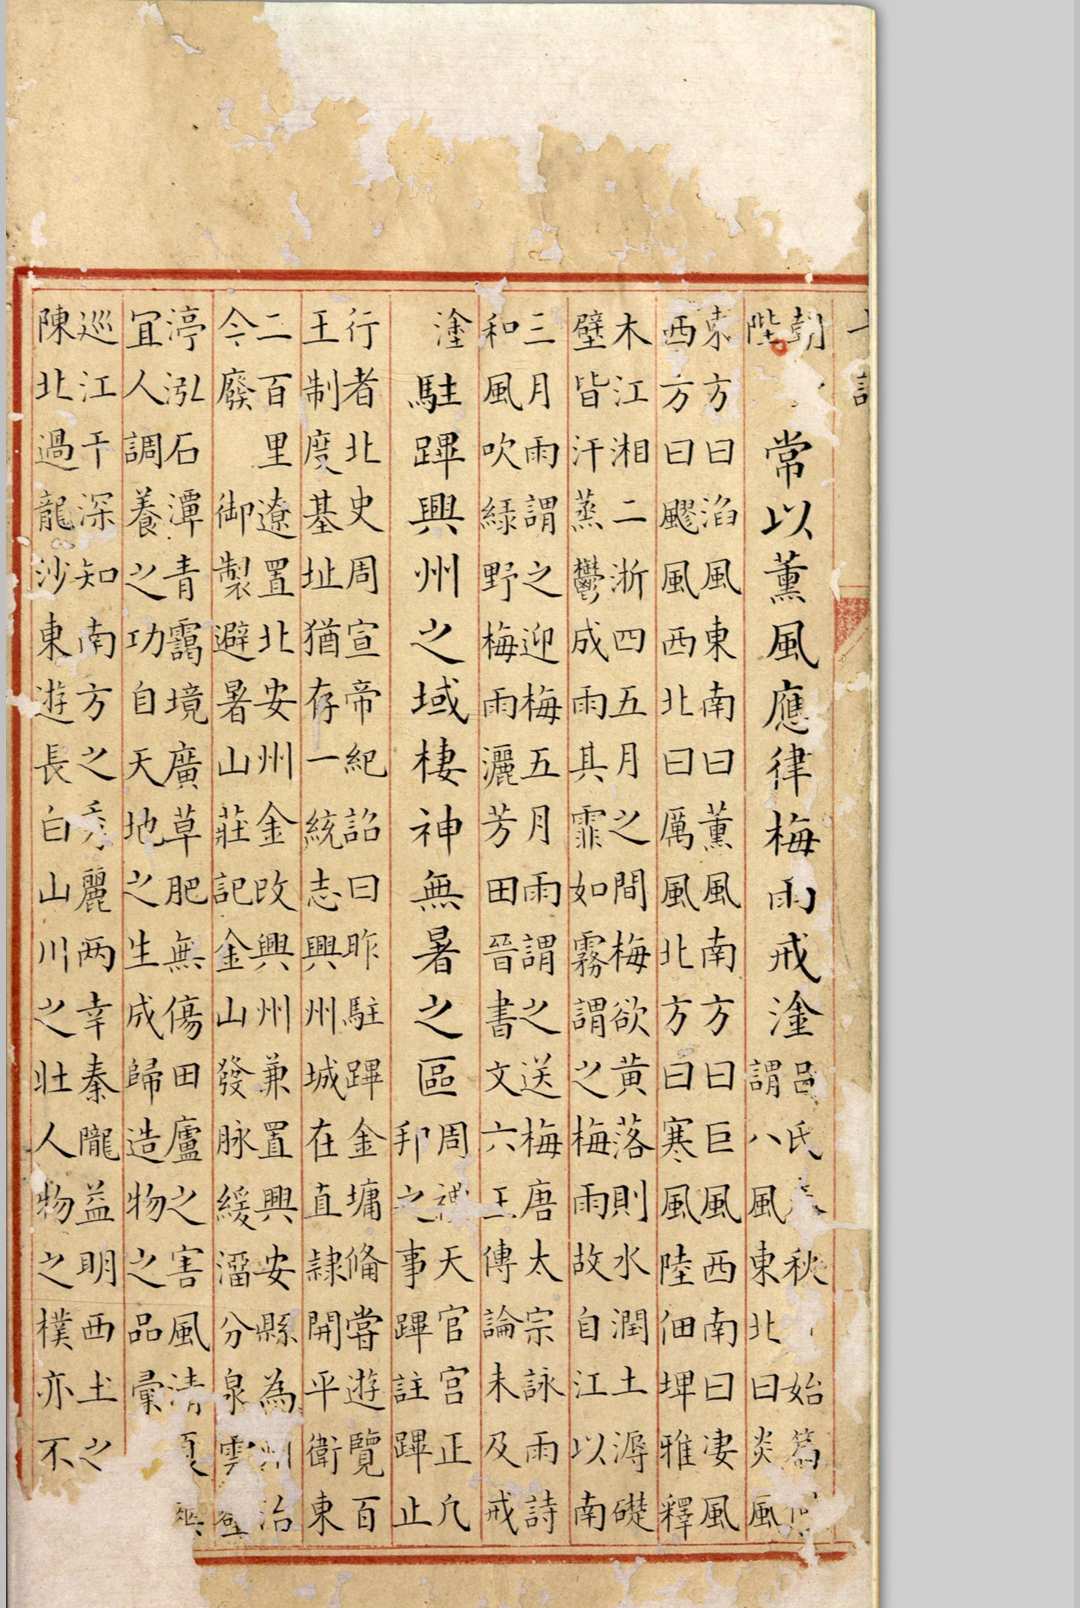 朝
陛
常以薰風應律梅雨戒塗
呂氏春秋始篇
謂八風東北曰炎風
東方曰滔風東南曰薰風南方曰巨風西南曰凄風
西方曰飂風西北曰厲風北方曰寒風陸佃埤雅釋
木江湘二浙四五月之間梅欲黄落則水潤土溽礎
壁皆汗蒸鬱成雨其霏如霧謂之梅雨故自江以南
三月雨謂之迎梅五月雨謂之送梅唐太宗詠雨詩
和風吹緑野梅雨灑芳田晉書文六王傳論未及戒
塗
駐蹕興州之域棲神無暑之區
周禮天官宫正凡
邦之事蹕註蹕止
行者北史周宣帝紀詔曰昨駐蹕金墉備嘗遊覽百
王制度基址猶存一統志興州城在直隸開平衛東
二百里遼置北安州金改興州兼置興安縣為州治
今廢御製避暑山莊記金山發脉緩溜分泉雲壑
渟泓石潭青靄境廣草肥無傷田廬之害風清夏爽
宜人調養之功自天地之生成歸造物之品彙
巡江干深知南方之秀麗两幸秦隴益明西土之
陳北過龍沙東遊長白山川之壯人物之樸亦不